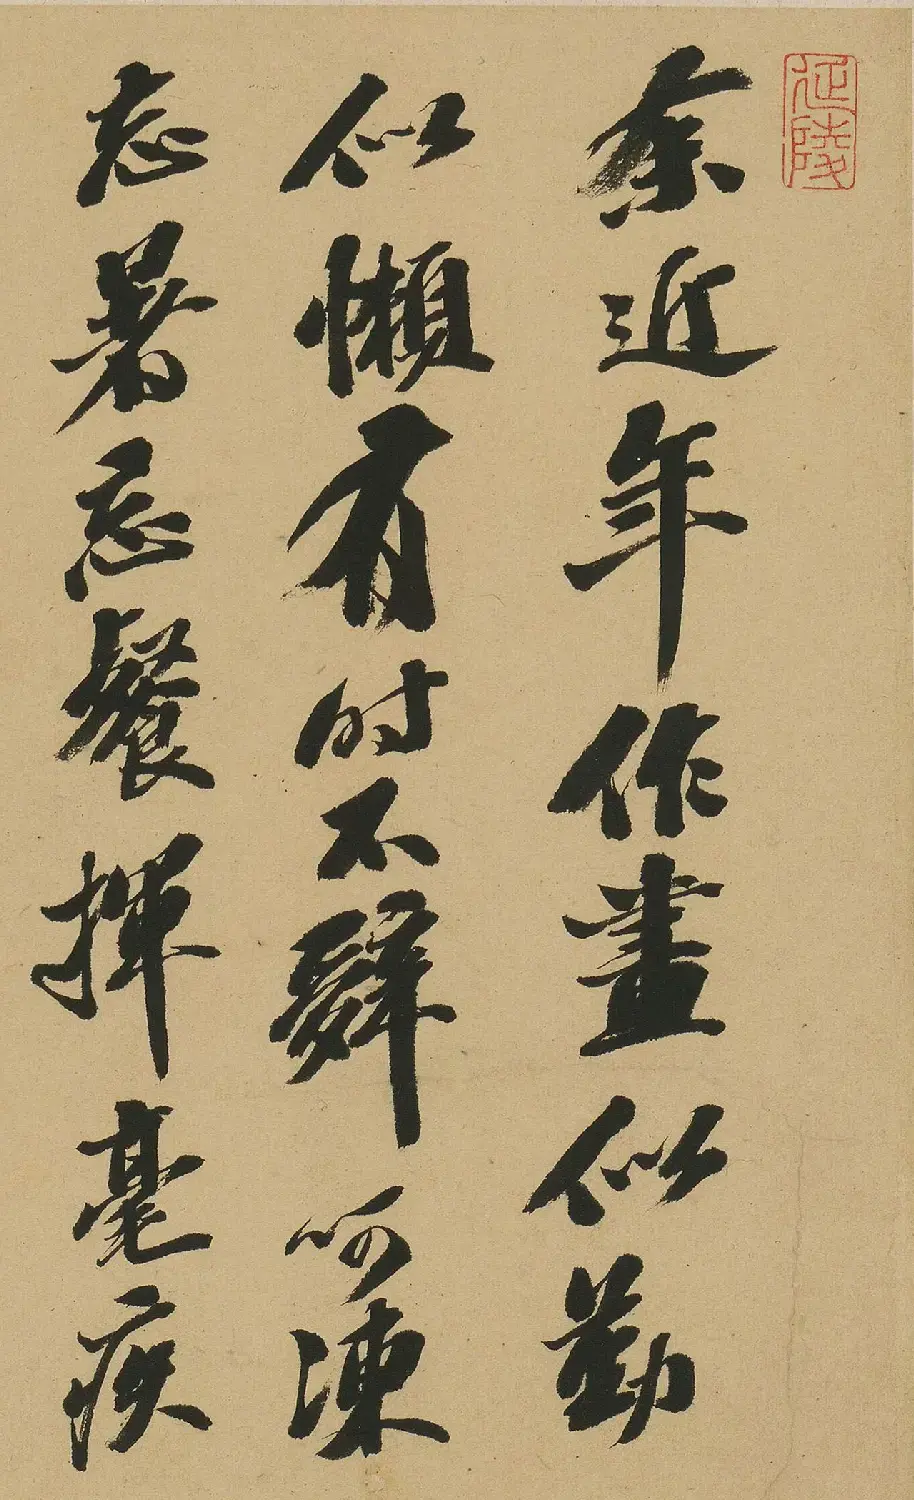 延陵
余近年作畫似勤
似懶有時不辤呵凍
忘暑忘餐揮毫疾